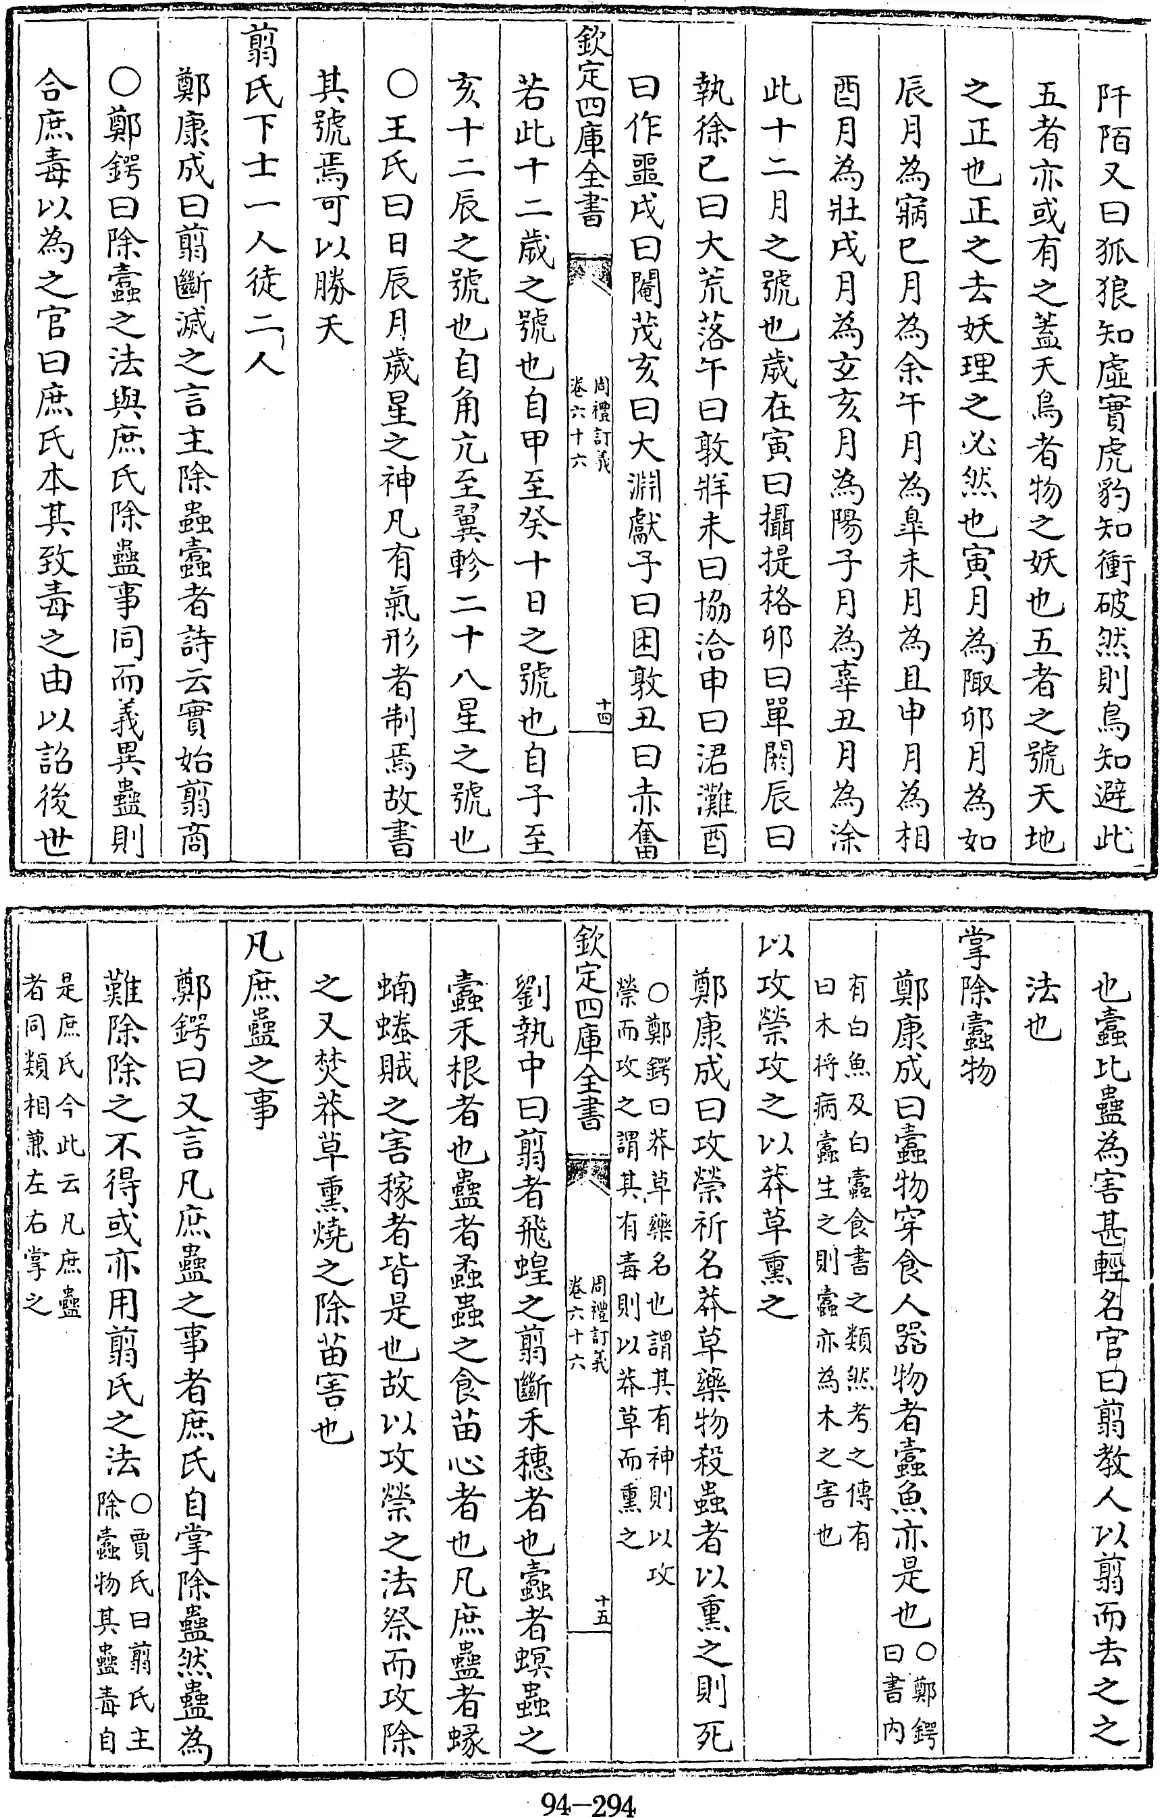 阡陌又曰狐狼知虛實虎豹知衝破然則鳥知避此
五者亦或有之蓋夭鳥者物之妖也五者之號天地
之正也正之去妖理之必然也寅月為陬卯月為如
辰月為寎巳月為余午月為臯未月為且申月為相
酉月為壯戌月為玄亥月為陽子月為辜丑月為涂
此十二月之號也歲在寅曰攝提格卯曰單閼辰曰
執徐巳曰大荒落午曰敦牂未曰協洽申曰涒灘酉
曰作噩戌曰閹茂亥曰大淵獻子曰困敦丑曰赤奮
欽定四庫全書
周禮訂義
卷六十六
十四
若此十二歲之號也自甲至癸十日之號也自子至
亥十二辰之號也自角亢至翼軫二十八星之號也
○王氏曰日辰月歲星之神凡有氣形者制焉故書
其號焉可以勝夭
翦氏下士一人徒二人
鄭康成曰翦斷滅之言主除蟲蠹者詩云實始翦商
○鄭鍔曰除蠹之法與庶氏除蠱事同而義異蠱則
合庶毒以為之官曰庶氏本其致毒之由以詔後世
也蠹比蠱為害甚輕名官曰翦教人以翦而去之之
法也
掌除蠹物
鄭康成曰蠹物穿食人器物者蠹魚亦是也○鄭鍔
曰書内
有白魚及白蠹食書之類然考之傳有
曰木將病蠹生之則蠹亦為木之害也
以攻禜攻之以莽草熏之
鄭康成曰攻禜祈名莽草藥物殺蟲者以熏之則死
○鄭鍔曰莽草藥名也謂其有神則以攻
禜而攻之謂其有毒則以莽草而熏之
欽定四庫全書
周禮訂義
卷六十六
十五
劉執中曰翦者飛蝗之翦斷禾穗者也蠹者螟蟲之
蠹禾根者也蠱者蟊蟲之食苗心者也凡庶蠱者蝝
蝻蜷賊之害稼者皆是也故以攻禜之法祭而攻除
之又焚莽草熏燒之除苗害也
凡庶蠱之事
鄭鍔曰又言凡庶蠱之事者庶氏自掌除蠱然蠱為
難除除之不得或亦用翦氏之法○賈氏曰翦氏主
除蠹物其蠱毒自
是庶氏今此云凡庶蠱
者同類相兼左右掌之
94-294